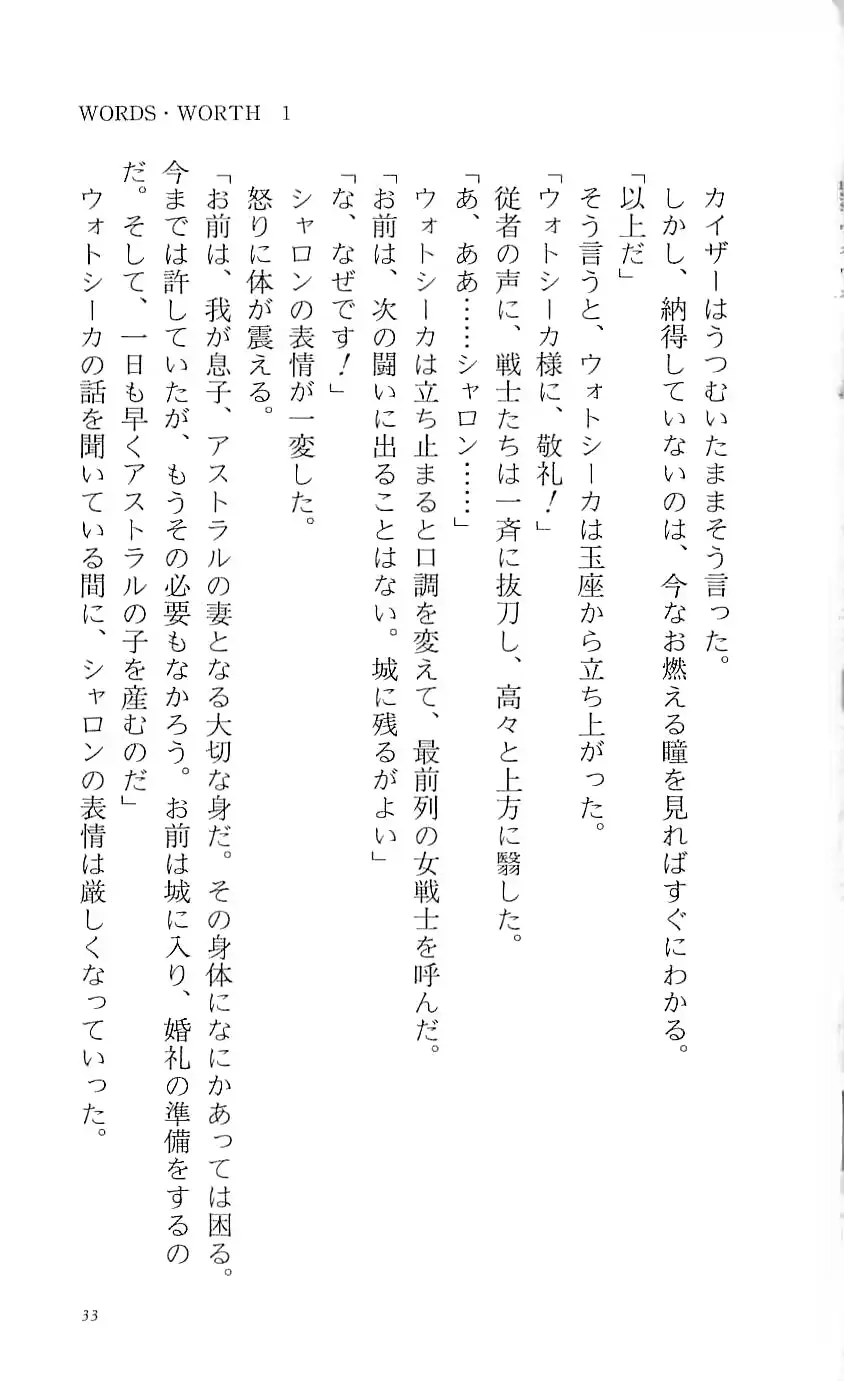 WORDS・WORTH 1
カイザーはうつむいたままそう言った。
しかし、納得していないのは、今なお燃える瞳を見ればすぐにわかる。
「以上だ」
そう言うと、ウォトシーカは玉座から立ち上がった。
「ウォトシーカ様に、敬礼！」
従者の声に、戦士たちは一斉に抜刀し、高々と上方に翳した。
「あ、ああ……シャロン……」
ウォトシーカは立ち止まると口調を変えて、最前列の女戦士を呼んだ。
「お前は、次の闘いに出ることはない。城に残るがよい」
「な、なぜです！」
シャロンの表情が一変した。
怒りに体が震える。
「お前は、我が息子、アストラルの妻となる大切な身だ。その身体になにかあっては困る。
今までは許していたが、もうその必要もなかろう。お前は城に入り、婚礼の準備をするの
だ。そして、一日も早くアストラルの子を産むのだ」
ウォトシーカの話を聞いている間に、シャロンの表情は厳しくなっていった。
33